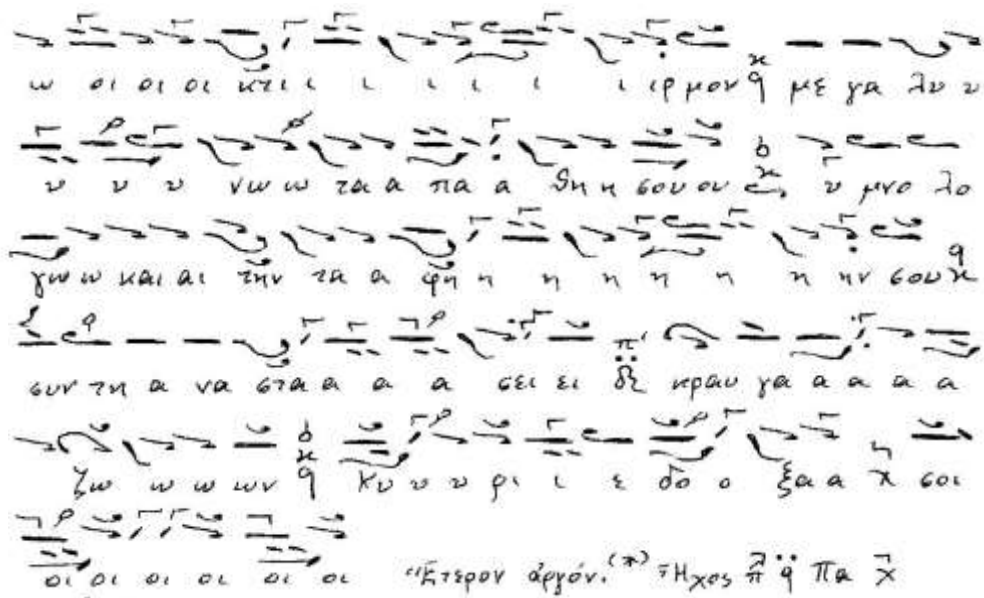 ω οι οι οι κτι ι ι ι ι ι ι ιρ μον με γα λυ υ
υ υ υ νω ω τα α πα α θη η σου ου υ μνο λο
γω ω και αι την τα α φη η η η η η η ην σου
συν τη α να στα α α α σει ει κραυ γα α α α α
ζω ω ω ων Κυ υ υ ρι ι ε δο ο ξα α σοι
οι οι οι οι οι οι Ἕτερον ἀργόν. Ἦχος Πα